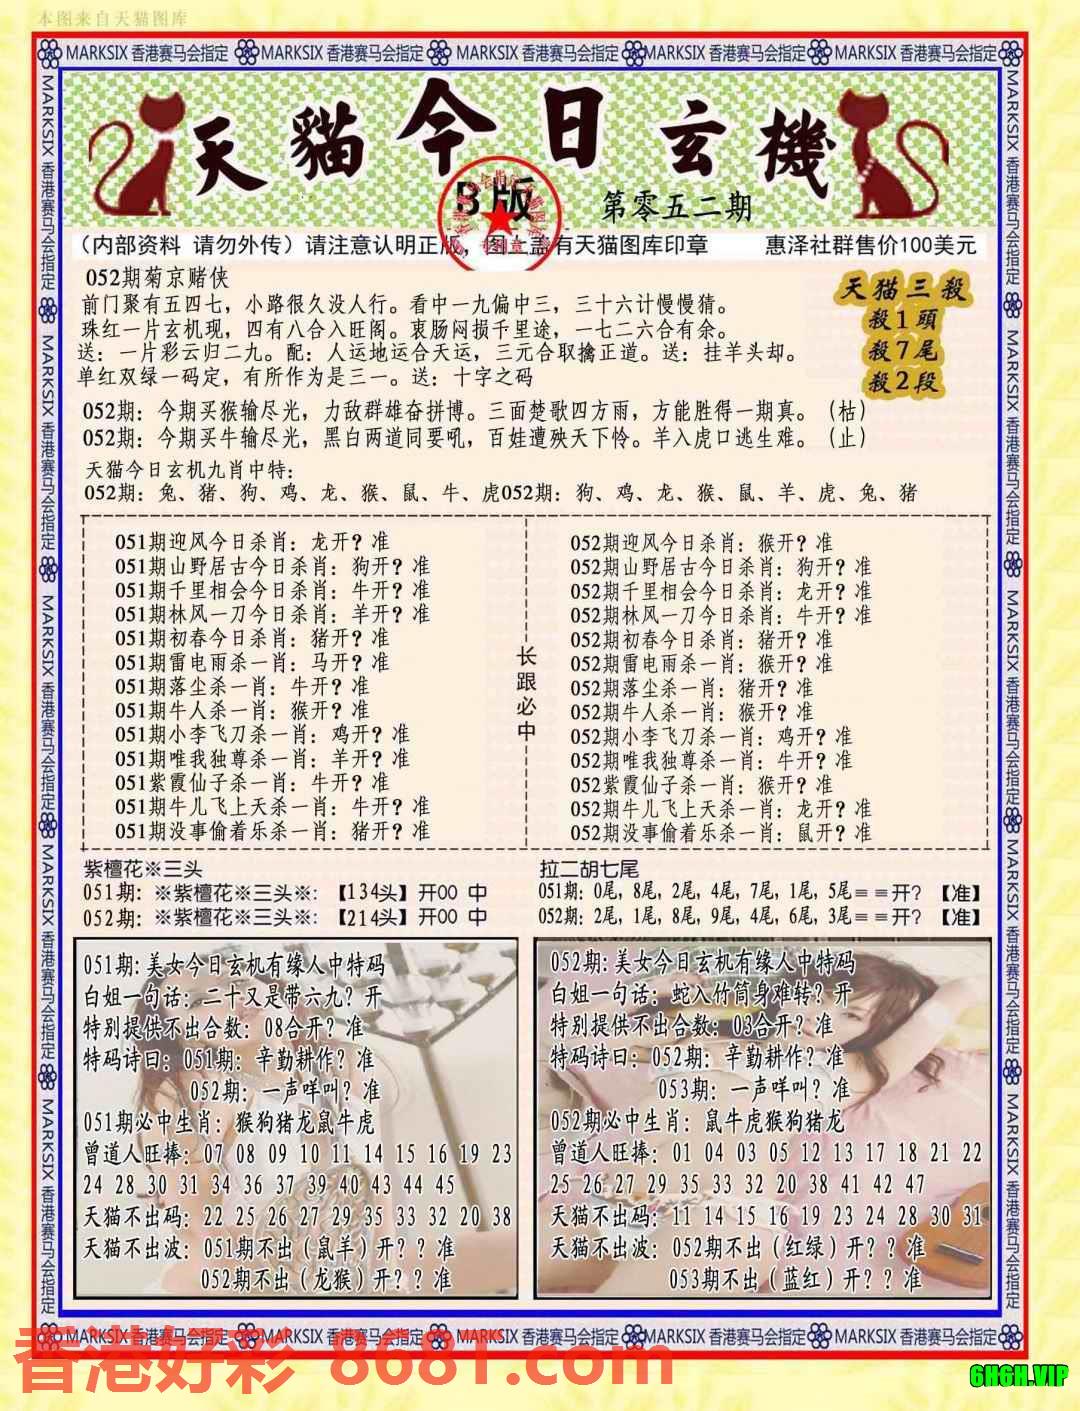 本图来自天猫图库
MARKSIX 香港赛马会指定 MARKSIX 香港赛马会指定 MARKSIX 香港赛马会指定 MARKSIX 香港赛马会指定 MARKSIX 香港赛马会指定
天貓今日玄機
B版
第零五二期
（内部资料 请勿外传）请注意认明正版，图上盖有天猫图库印章 惠泽社群售价100美元
052期菊京赌侠
前门聚有五四七，小路很久没人行。看中一九偏中三，三十六计慢慢猜。
珠红一片玄机现，四有八合入旺阁。衷肠闷损千里途，一七二六合有余。
送：一片彩云归二九。配：人运地运合天运，三元合取擒正道。送：挂羊头却。
单红双绿一码定，有所作为是三一。送：十字之码
天猫三殺
殺1頭
殺7尾
殺2段
052期：今期买猴输尽光，力敌群雄奋拼博。三面楚歌四方雨，方能胜得一期真。（枯）
052期：今期买牛输尽光，黑白两道同要吼，百姓遭殃天下怜。羊入虎口逃生难。（止）
天猫今日玄机九肖中特：
052期：兔、猪、狗、鸡、龙、猴、鼠、牛、虎052期：狗、鸡、龙、猴、鼠、羊、虎、兔、猪
051期迎风今日杀肖：龙开？准
051期山野居古今日杀肖：狗开？准
051期千里相会今日杀肖：牛开？准
051期林风一刀今日杀肖：羊开？准
051期初春今日杀肖：猪开？准
051期雷电雨杀一肖：马开？准
051期落尘杀一肖：牛开？准
051期牛人杀一肖：猴开？准
051期小李飞刀杀一肖：鸡开？准
051期唯我独尊杀一肖：羊开？准
051紫霞仙子杀一肖：牛开？准
051期牛儿飞上天杀一肖：牛开？准
051期没事偷着乐杀一肖：猪开？准
长跟必中
052期迎风今日杀肖：猴开？准
052期山野居古今日杀肖：狗开？准
052期千里相会今日杀肖：龙开？准
052期林风一刀今日杀肖：牛开？准
052期初春今日杀肖：猪开？准
052期雷电雨杀一肖：猴开？准
052期落尘杀一肖：猪开？准
052期牛人杀一肖：猴开？准
052期小李飞刀杀一肖：鸡开？准
052期唯我独尊杀一肖：牛开？准
052紫霞仙子杀一肖：猴开？准
052期牛儿飞上天杀一肖：龙开？准
052期没事偷着乐杀一肖：鼠开？准
紫檀花※三头
051期：※紫檀花※三头※：【134头】开00 中
052期：※紫檀花※三头※：【214头】开00 中
拉二胡七尾
051期：0尾，8尾，2尾，4尾，7尾，1尾，5尾＝＝开？【准】
052期：2尾，1尾，8尾，9尾，4尾，6尾，3尾＝＝开？【准】
051期：美女今日玄机有缘人中特码
白姐一句话：二十又是带六九？开
特别提供不出合数：08合开？准
特码诗曰：051期：辛勤耕作？准
052期：一声咩叫？准
051期必中生肖：猴狗猪龙鼠牛虎
曾道人旺捧：07 08 09 10 11 14 15 16 19 23
24 28 30 31 34 36 37 39 40 43 44 45
天猫不出码：22 25 26 27 29 35 33 32 20 38
天猫不出波：051期不出（鼠羊）开？？准
052期不出（龙猴）开？？准
052期：美女今日玄机有缘人中特码
白姐一句话：蛇入竹筒身难转？开
特别提供不出合数：03合开？准
特码诗曰：052期：辛勤耕作？准
053期：一声咩叫？准
052期必中生肖：鼠牛虎猴狗猪龙
曾道人旺捧：01 04 03 05 12 13 17 18 21 22
25 26 27 29 35 33 32 20 38 41 42 47
天猫不出码：11 14 15 16 19 23 24 28 30 31
天猫不出波：052期不出（红绿）开？？准
053期不出（蓝红）开？？准
MARKSIX 香港赛马会指定 MARKSIX 香港赛马会指定 MARKSIX 香港赛马会指定 MARKSIX 香港赛马会指定 MARKSIX 香港赛马会指定
香港好彩 8681.com
6H6H.VIP